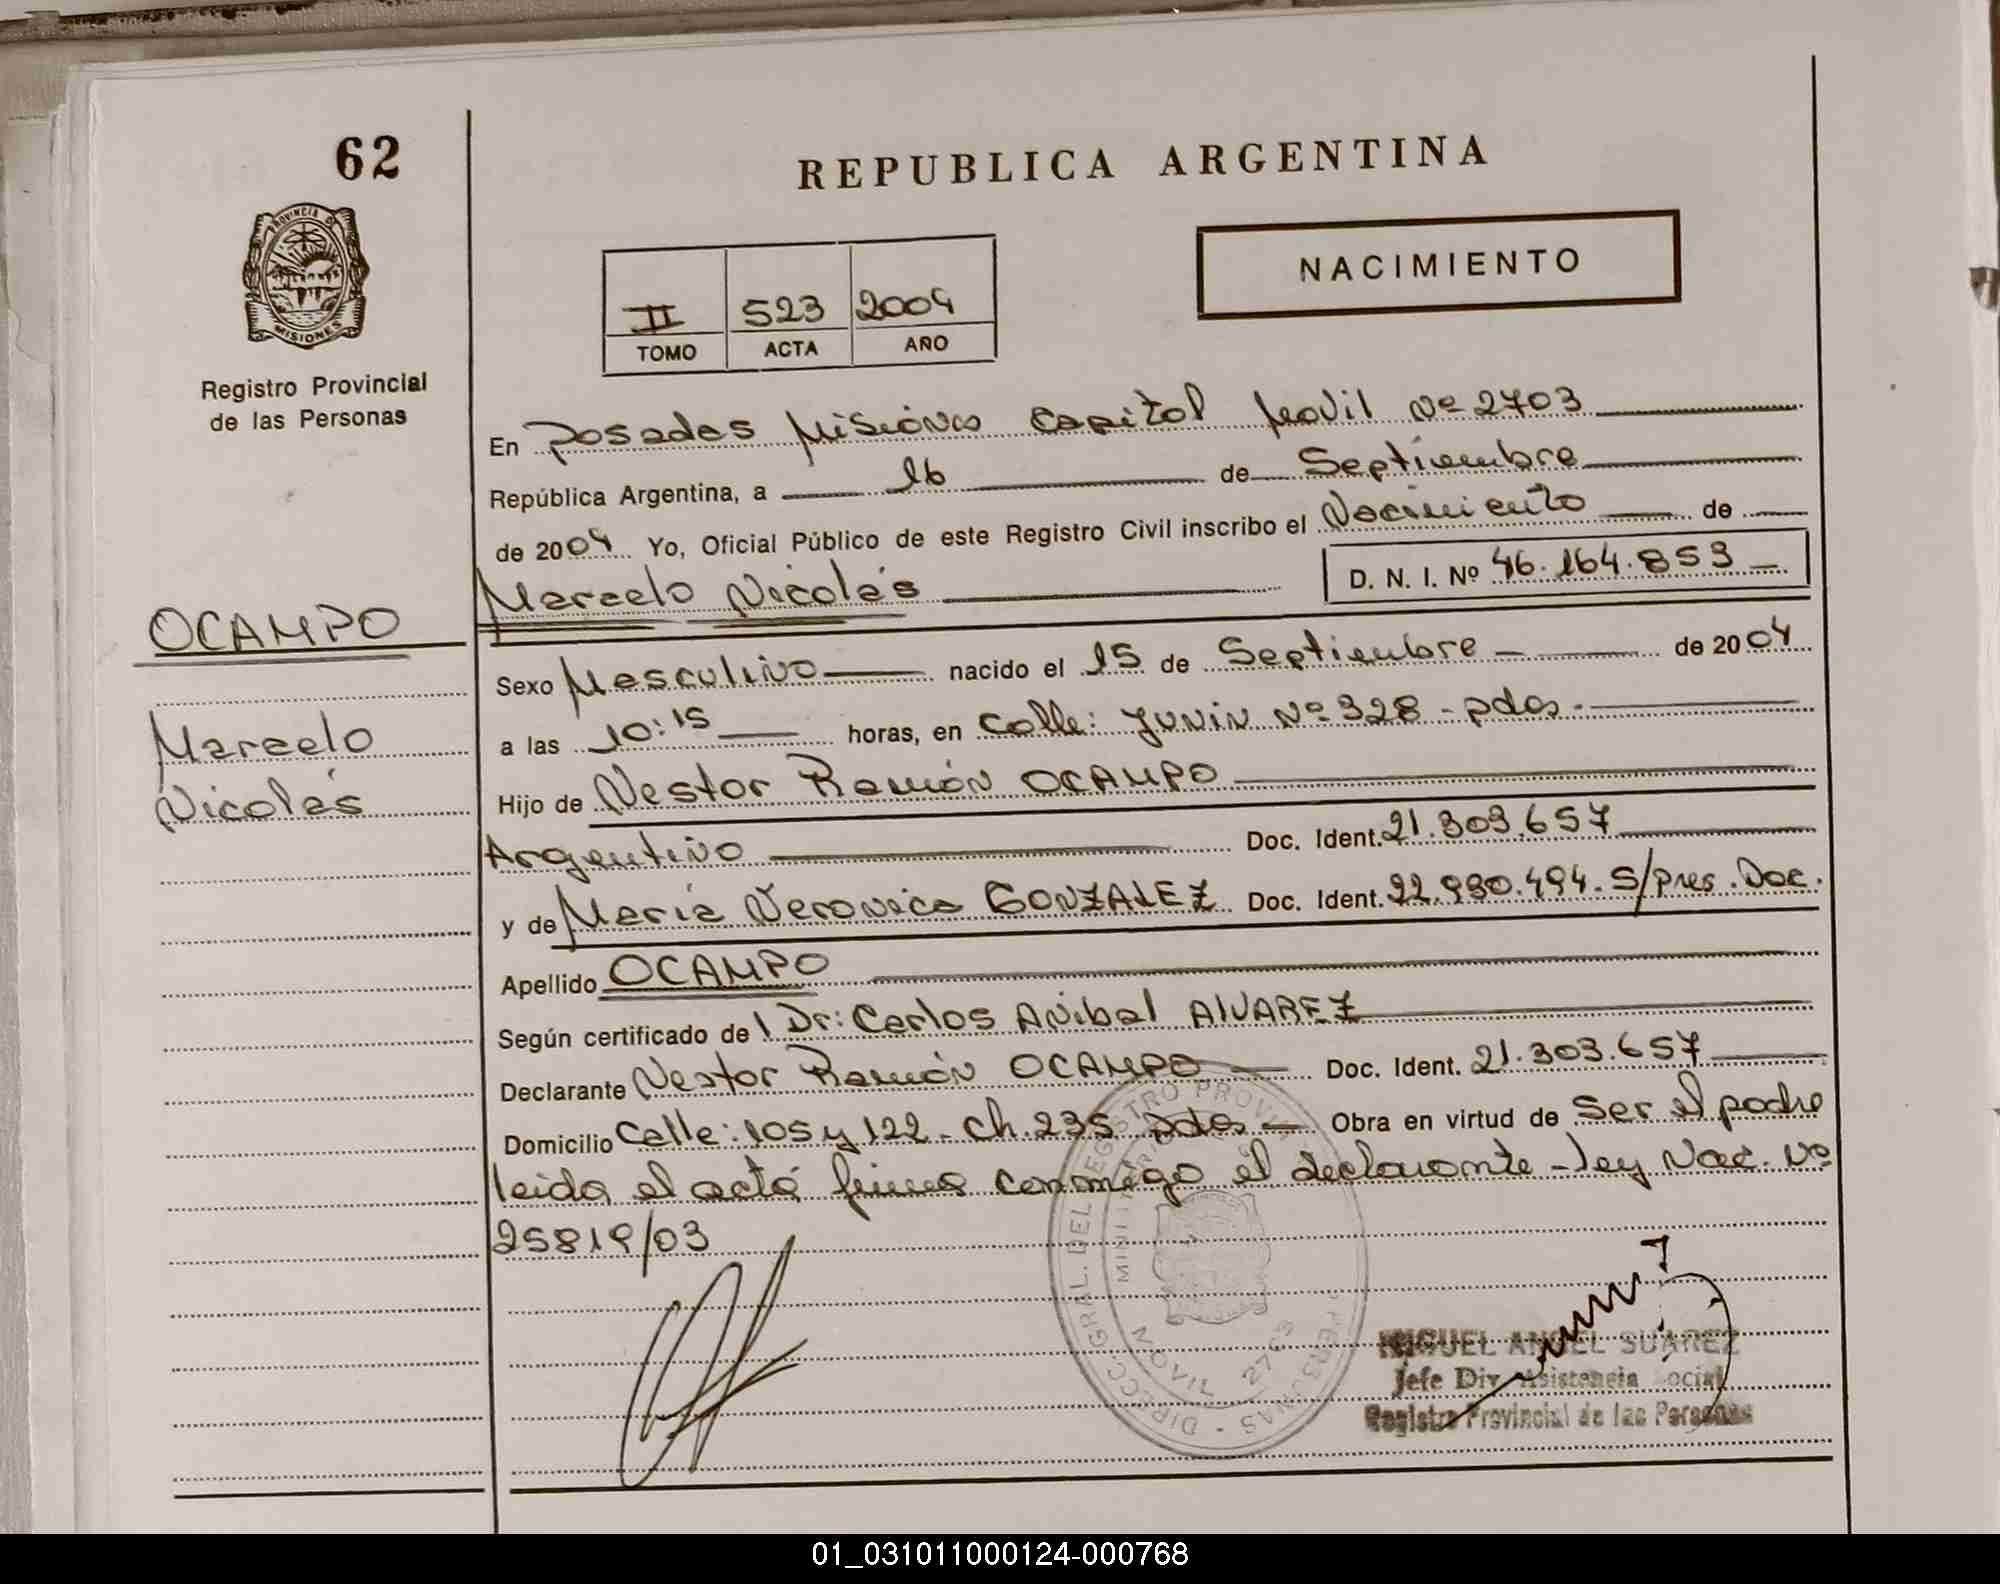 62
REPUBLICA ARGENTINA
PROVINCIA DE
MISIONES
Registro Provincial
de las Personas
II 523 2004
TOMO ACTA AÑO
NACIMIENTO
En Posadas Misiones Capital Movil Nº 2703
República Argentina, a 16 de Septiembre
de 2004 Yo, Oficial Público de este Registro Civil inscribo el Nacimiento de
Marcelo Nicolás D. N. I. Nº 46.164.853
OCAMPO
Marcelo
Nicolás
Sexo Masculino nacido el 15 de Septiembre de 2004
a las 10:15 horas, en Calle: Junin Nº 328 - pdas.
Hijo de Nestor Ramón OCAMPO
Argentino Doc. Ident. 21.303.657
y de María Veronica GONZALEZ Doc. Ident. 22.980.494. S/Pres. Doc.
Apellido OCAMPO
Según certificado de Dr: Carlos Anibal ALVAREZ
Declarante Nestor Ramón OCAMPO Doc. Ident. 21.303.657
Domicilio Calle: 105 y 122 - Ch. 235 pdas Obra en virtud de Ser el padre
leida el acta firma conmigo el declarante - ley Nac. Nº
25819/03
DIRECC. GRAL. DEL REGISTRO PROVINCIAL PERSONAS
MOVIL 2703
MIGUEL ANGEL SUAREZ
Jefe Div. Asistencia Social
Registro Provincial de las Personas
01_031011000124-000768